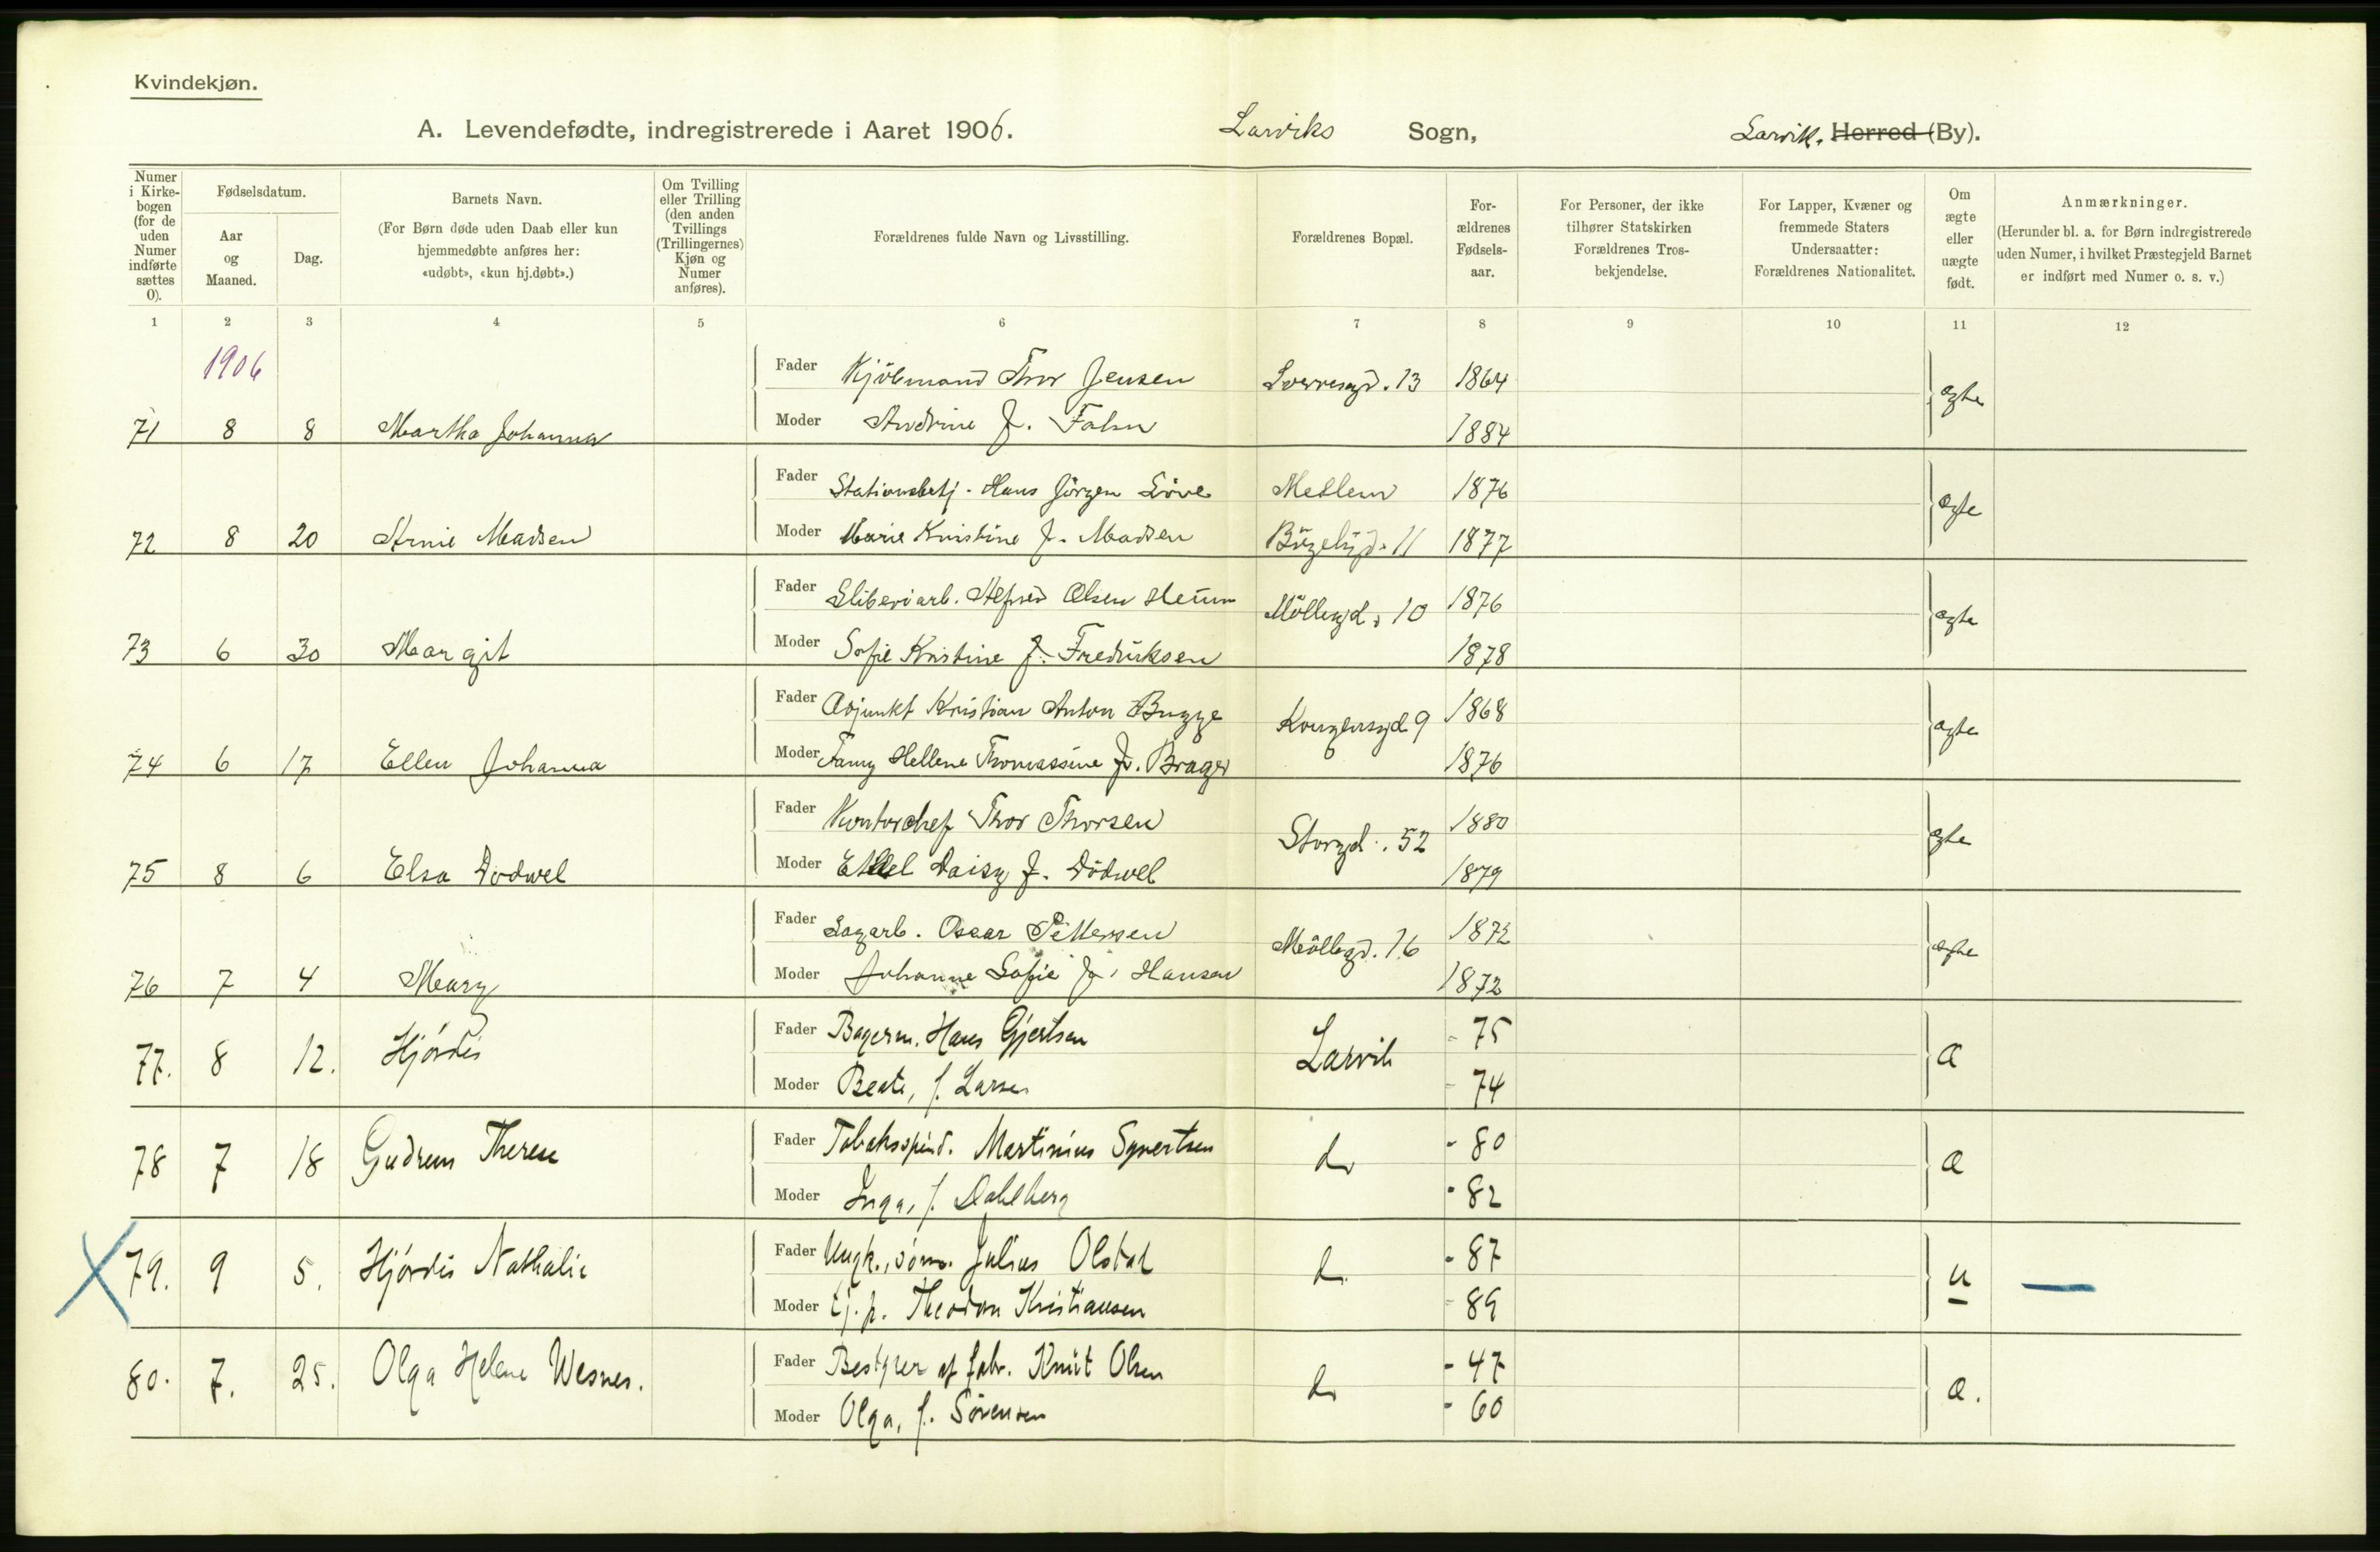 Kvindekjøn.
A. Levendefødte, indregistrerede i Aaret 1906. Larviks Sogn, Larvik. Herred (By).
Numer i Kirkebogen (for de uden Numer indførte sættes 0).
Fødselsdatum.
Aar og Maaned.
Dag.
Barnets Navn.
(For Børn døde uden Daab eller kun hjemmedøbte anføres her: «udøbt», «kun hj.døbt».)
Om Tvilling eller Trilling (den anden Tvillings (Trillingernes) Kjøn og Numer anføres).
Forældrenes fulde Navn og Livsstilling.
Forældrenes Bopæl.
Forældrenes Fødselsaar.
For Personer, der ikke tilhører Statskirken Forældrenes Trosbekjendelse.
For Lapper, Kvæner og fremmede Staters Undersaatter: Forældrenes Nationalitet.
Om ægte eller uægte født.
Anmærkninger.
(Herunder bl. a. for Børn indregistrerede uden Numer, i hvilket Præstegjeld Barnet er indført med Numer o. s. v.)
1 2 3 4 5 6 7 8 9 10 11 12
1906
Fader Kjöbmand Thor Jensen 13 1864 ægte
71 8 8 Martha Johanna Moder Andrine f. 1884
Fader Stationsbetj. Hans Jörgen Löve Mellem 1876 ægte
72 8 20 Madsen Moder Marie Kristine f. Madsen Bögelyd. 11 1877
Fader Sliberiarb. Alfred Olsen Möllegd. 10 1876 ægte
73 6 30 Margit Moder Sofie Kristine f. Fredriksen 1878
Fader Adjunkt Kristian Anton Bugge Kongensgd 9 1868 ægte
74 6 17 Ellen Johanna Moder Fanny Hellene Thomassine f. 1876
Fader Kontorchef Thor Thorsen Storgd. 52 1880 ægte
75 8 6 Elsa Dodwel Moder Ethel Daisy f. Dödwel 1879
Fader Sagarb. Oscar Pettersen Möllegd. 16 1872 ægte
76 7 4 Mary Moder Johanne Sofie f. Hansen 1872
Fader Bagerm. Hans Gjertsen Larvik - 75
77. 8 12. Hjördis Moder Beate, f. Larsen - 74 æ
Fader Tobaksspind. Martinius Syvertsen do - 80
78 7 18 Gudrun Therese Moder Inga, f. Dahlberg - 82 æ
Fader Ungk., söm. Julius Olstad do - 87
79. 9 5. Hjördis Nathalie Moder tj.p. Kristiansen - 89 u —
Fader Bestyrer af fabr. Knut Olsen do - 47
80. 7. 25. Olga Helene Wesnes. Moder Olga, f. Sörensen - 60 æ.